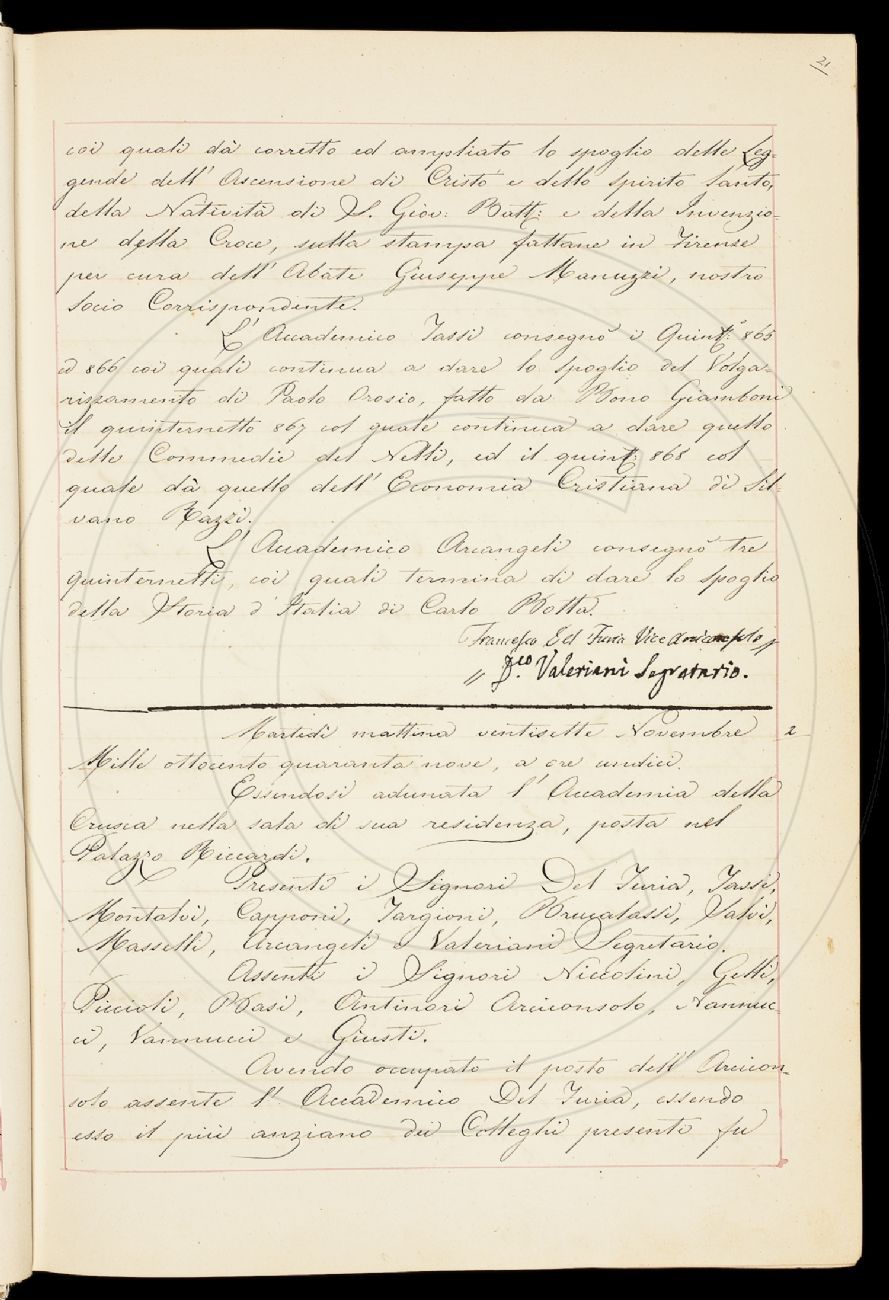 21
coi quali dà corretto ed ampliato lo spoglio delle Leg-
gende dell' Ascensione di Cristo e dello Spirito Santo,
della Natività di S. Giov: Batt: e della Invenzio-
ne della Croce, sulla stampa fattane in Firenze
per cura dell' Abate Giuseppe Manuzzi, nostro
Socio Corrispondente.
L' Accademico Tassi consegnò i Quint:i 865
ed 866 coi quali continua a dare lo spoglio del Volga-
rizzamento di Paolo Orosio, fatto da Bono Giamboni
il quinternetto 867 col quale continua a dare quello
delle Commedie del Nelli, ed il quint: 868 col
quale dà quello dell' Economia Cristiana di Sil-
vano Razzi.
L' Accademico Arcangeli consegnò tre
quinternetti, coi quali termina di dare lo spoglio
della Storia d' Italia di Carlo Botta.
Francesco Del Furia Vice Arciconsolo
" F.co Valeriani Segretario.
Martedì mattina ventisette Novembre 2
Mille ottocento quaranta nove, a ore undici.
Essendosi adunata l' Accademia della
Crusca nella sala di sua residenza, posta nel
Palazzo Riccardi.
Presenti i Signori Del Furia, Tassi,
Montalvi, Capponi, Targioni, Brucalassi, Salvi,
Masselli, Arcangeli e Valeriani Segretario.
Assenti i Signori Niccolini, Gelli,
Piccioli, Basi, Antinori Arciconsolo, Nannuc-
ci, Vannucci e Giusti.
Avendo occupato il posto dell' Arcicon-
solo assente l' Accademico Del Furia, essendo
esso il più anziano dei Colleghi presenti fu